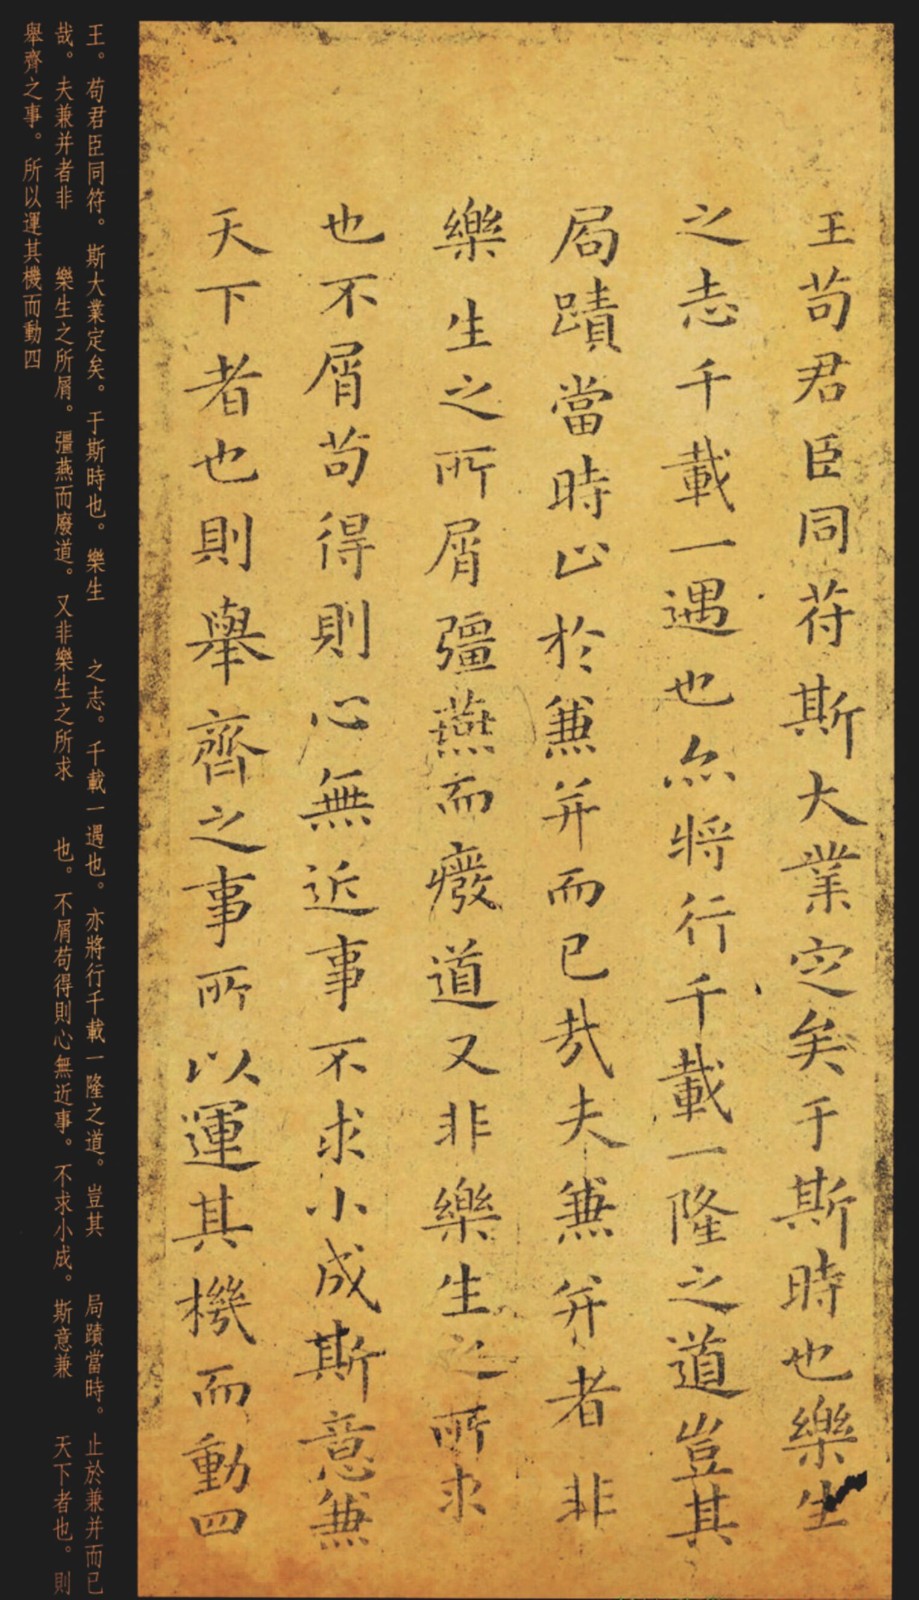 王苟君臣同苻斯大業定矣于斯時也樂生
之志千載一遇也亦將行千載一隆之道豈其
局蹟當時止於兼并而已哉夫兼并者非
樂生之所屑彊燕而廢道又非樂生之所求
也不屑苟得則心無近事不求小成斯意兼
天下者也則舉齊之事所以運其機而動四
王。苟君臣同符。斯大業定矣。于斯時也。樂生 之志。千載一遇也。亦將行千載一隆之道。豈其 局蹟當時。止於兼并而已
哉。夫兼并者非 樂生之所屑。彊燕而廢道。又非樂生之所求 也。不屑苟得則心無近事。不求小成。斯意兼 天下者也。則
舉齊之事。所以運其機而動四